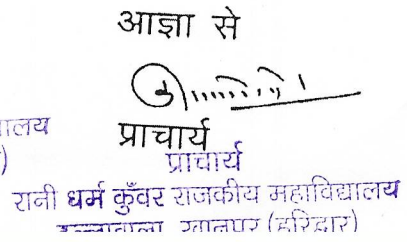 आज्ञा से
ालय
प्राचार्य
)
प्राचार्य
रानी धर्म कुँवर राजकीय महाविद्यालय
दल्लावाला, खानपुर (हरिद्वार)